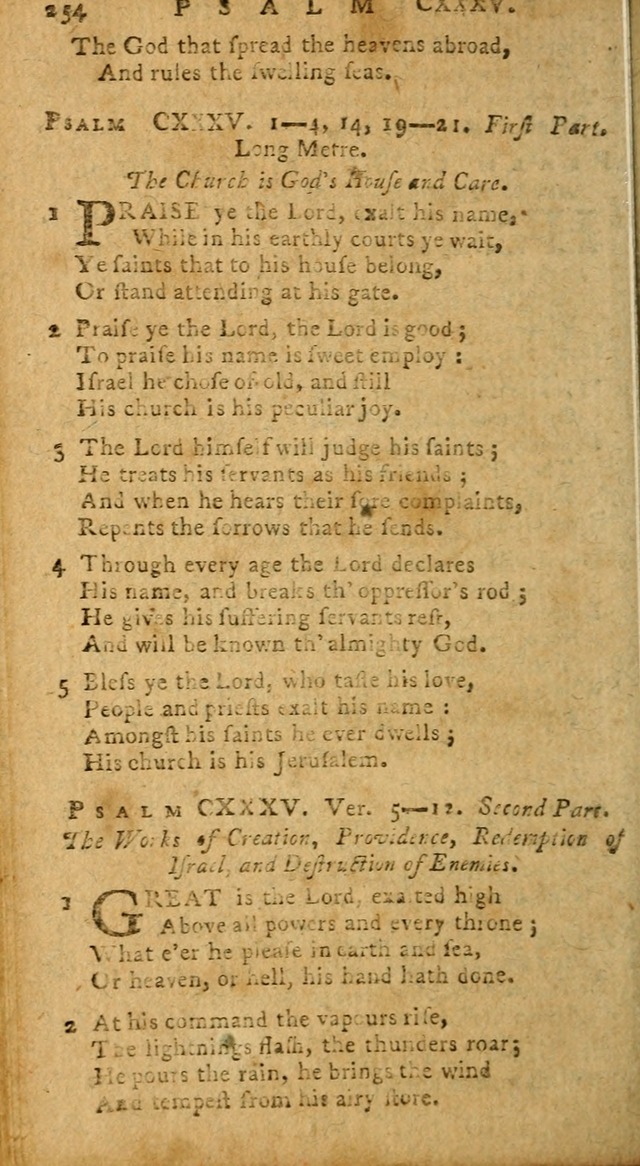 254 PSALM CXXXV.
The God that ſpread the heavens abroad,
And rules the ſwelling ſeas.
PSALM CXXXV. 1—4, 14, 19—21. Firſt Part.
Long Metre.
The Church is God's Houſe and Care.
1 PRAISE ye the Lord, exalt his name,
While in his earthly courts ye wait,
Ye ſaints that to his houſe belong,
Or ſtand attending at his gate.
2 Praiſe ye the Lord, the Lord is good ;
To praiſe his name is ſweet employ :
Iſrael he choſe of old, and ſtill
His church is his peculiar joy.
3 The Lord himſelf will judge his ſaints ;
He treats his ſervants as his friends ;
And when he hears their ſore complaints,
Repents the ſorrows that he ſends.
4 Through every age the Lord declares
His name, and breaks th' oppreſſor's rod ;
He gives his ſuffering ſervants reſt,
And will be known th' almighty God.
5 Bleſs ye the Lord, who taſte his love,
People and prieſts exalt his name :
Amongſt his ſaints he ever dwells ;
His church is his Jeruſalem.
PSALM CXXXV. Ver. 5—12. Second Part.
The Works of Creation, Providence, Redemption of
Iſrael, and Deſtruction of Enemies.
1 GREAT is the Lord, exalted high
Above all powers and every throne ;
What e'er he pleaſe in earth and ſea,
Or heaven, or hell, his hand hath done.
2 At his command the vapours riſe,
The lightnings flaſh, the thunders roar ;
He pours the rain, he brings the wind
And tempeſt from his airy ſtore.